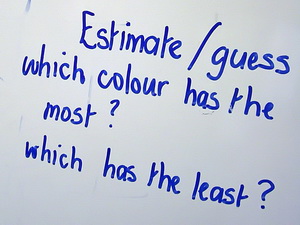 Estimate/guess
which colour has the
most?
which has the least?